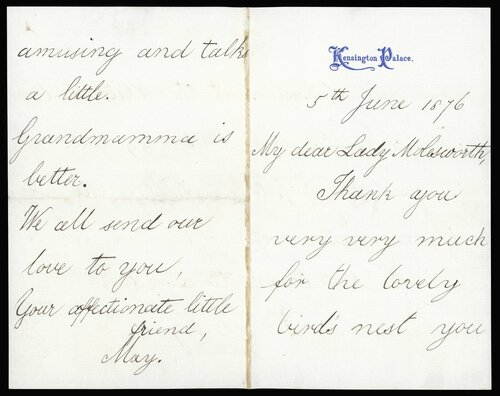 Kensington Palace.
5th June 1876
My dear Lady Molesworth,
Thank you
very very much
for the lovely
bird's nest you
amusing and talks
a little.
Grandmamma is
better.
We all send our
love to you,
Your affectionate little
friend,
May.